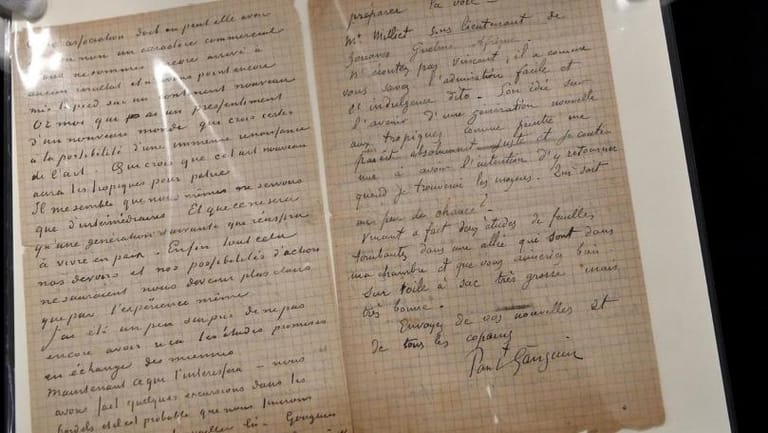 cette association doit ou peut elle avoir
ou non un caractère commercial
nous ne sommes encore arrivé à
aucun résultat et n'avons point encore
mis le pied sur un continent nouveau
Or moi qui ai un présentiment
d'un nouveau monde qui crois certes
à la possibilité d'une immense renaissance
de l'art. Qui crois que cet art nouveau
aura les tropiques pour patrie
Il me semble que nous mêmes ne servons
que d'intermédiaires. Et que ce ne sera
qu'une génération suivante qui réussira
à vivre en paix. Enfin tout cela
nos devoirs et nos possibilités d'action
ne sauraient nous devenir plus clairs
que par l'expérience même
J'ai été un peu surpris de ne pas
encore avoir reçu les études promises
en échange des miennes
Maintenant ce qui t'interessera - nous
avons fait quelques excursions dans les
bordels et il est probable que nous finirons
là. Gauguin
préparer la voie -
Mr Milliet sous lieutenant de
Zouaves Guelma Afrique
N'écoutez pas vincent, il a comme
vous savez l'admiration facile et
et indulgence dito. Son idée sur
l'avenir d'une génération nouvelle
aux tropiques comme peintre me
parait absolument juste et je contin
ue à avoir l'intention d'y retourner
quand je trouverai les moyens. Qui sait
un peu de chance?
Vincent a fait deux études de feuilles
tombantes dans une allée qui sont dans
ma chambre et que vous aimeriez bien
Sur toile à sac très grosse mais
très bonne.
Envoyez de vos nouvelles et
de tous les copains
Paul Gauguin